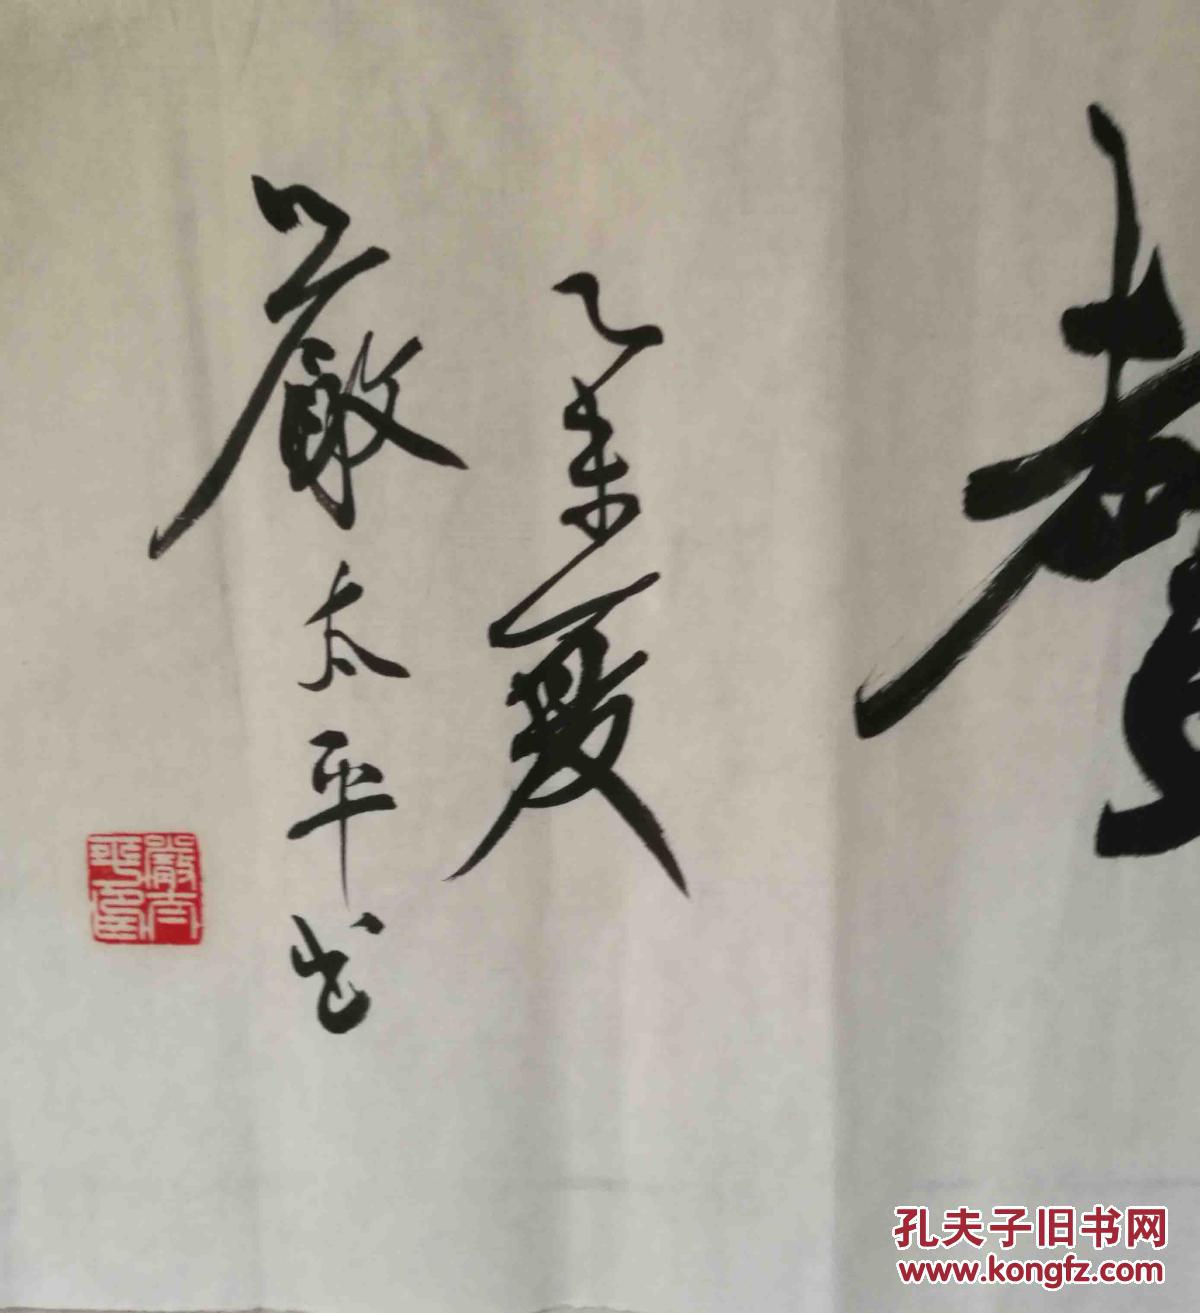 乙未夏
嚴太平书
嚴太平印
孔夫子旧书网
www.kongfz.com